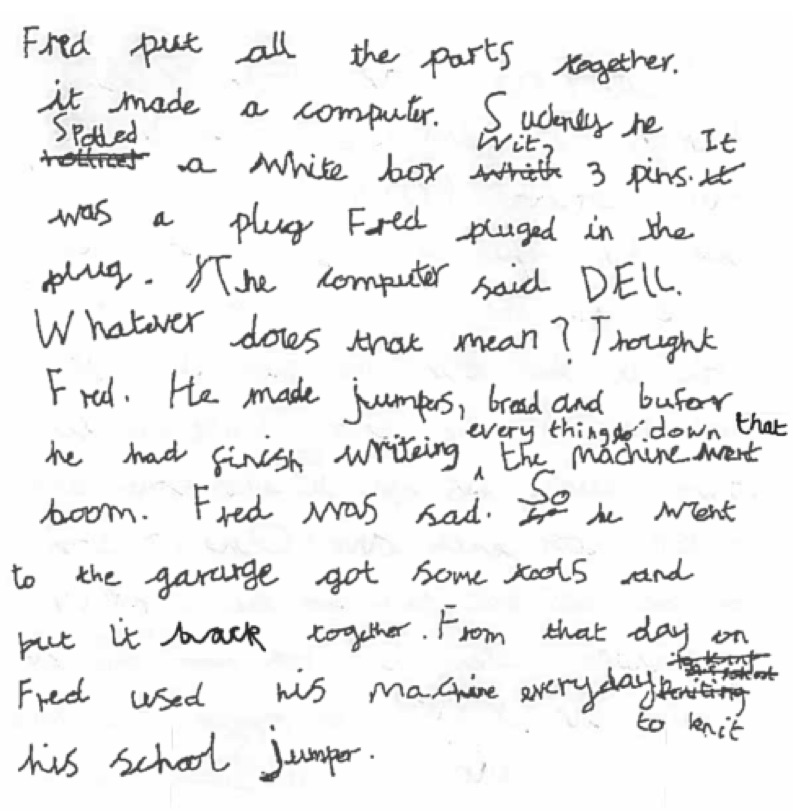 Fred put all the parts together.
it made a computer. Sudenly he
Spotted a white box with 3 pins. It
was a plug Fred pluged in the
plug. The computer said DELL.
Whatever does that mean? Thought
Fred. He made jumpers, bread and bufor
he had finish writeing every things down that the machine went
boom. Fred was sad. So he went
to the gararge got some tools and
put it back together. From that day on
Fred used his machine everyday to knit
his school jumper.